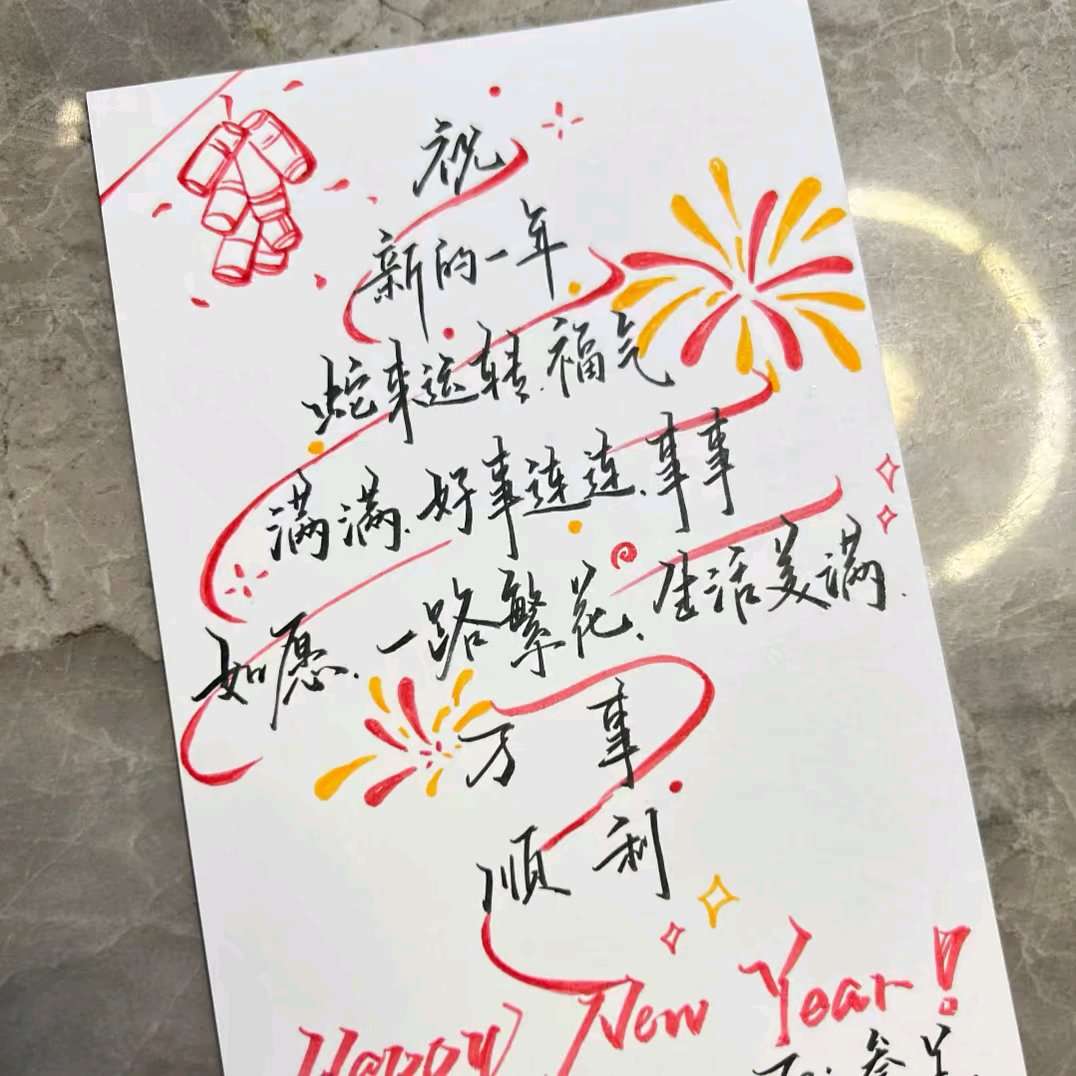 祝
新的一年
蛇来运转.福气
满满.好事连连.事事
如愿.一路繁花.生活美满.
万事
顺利
Happy New Year!
To: